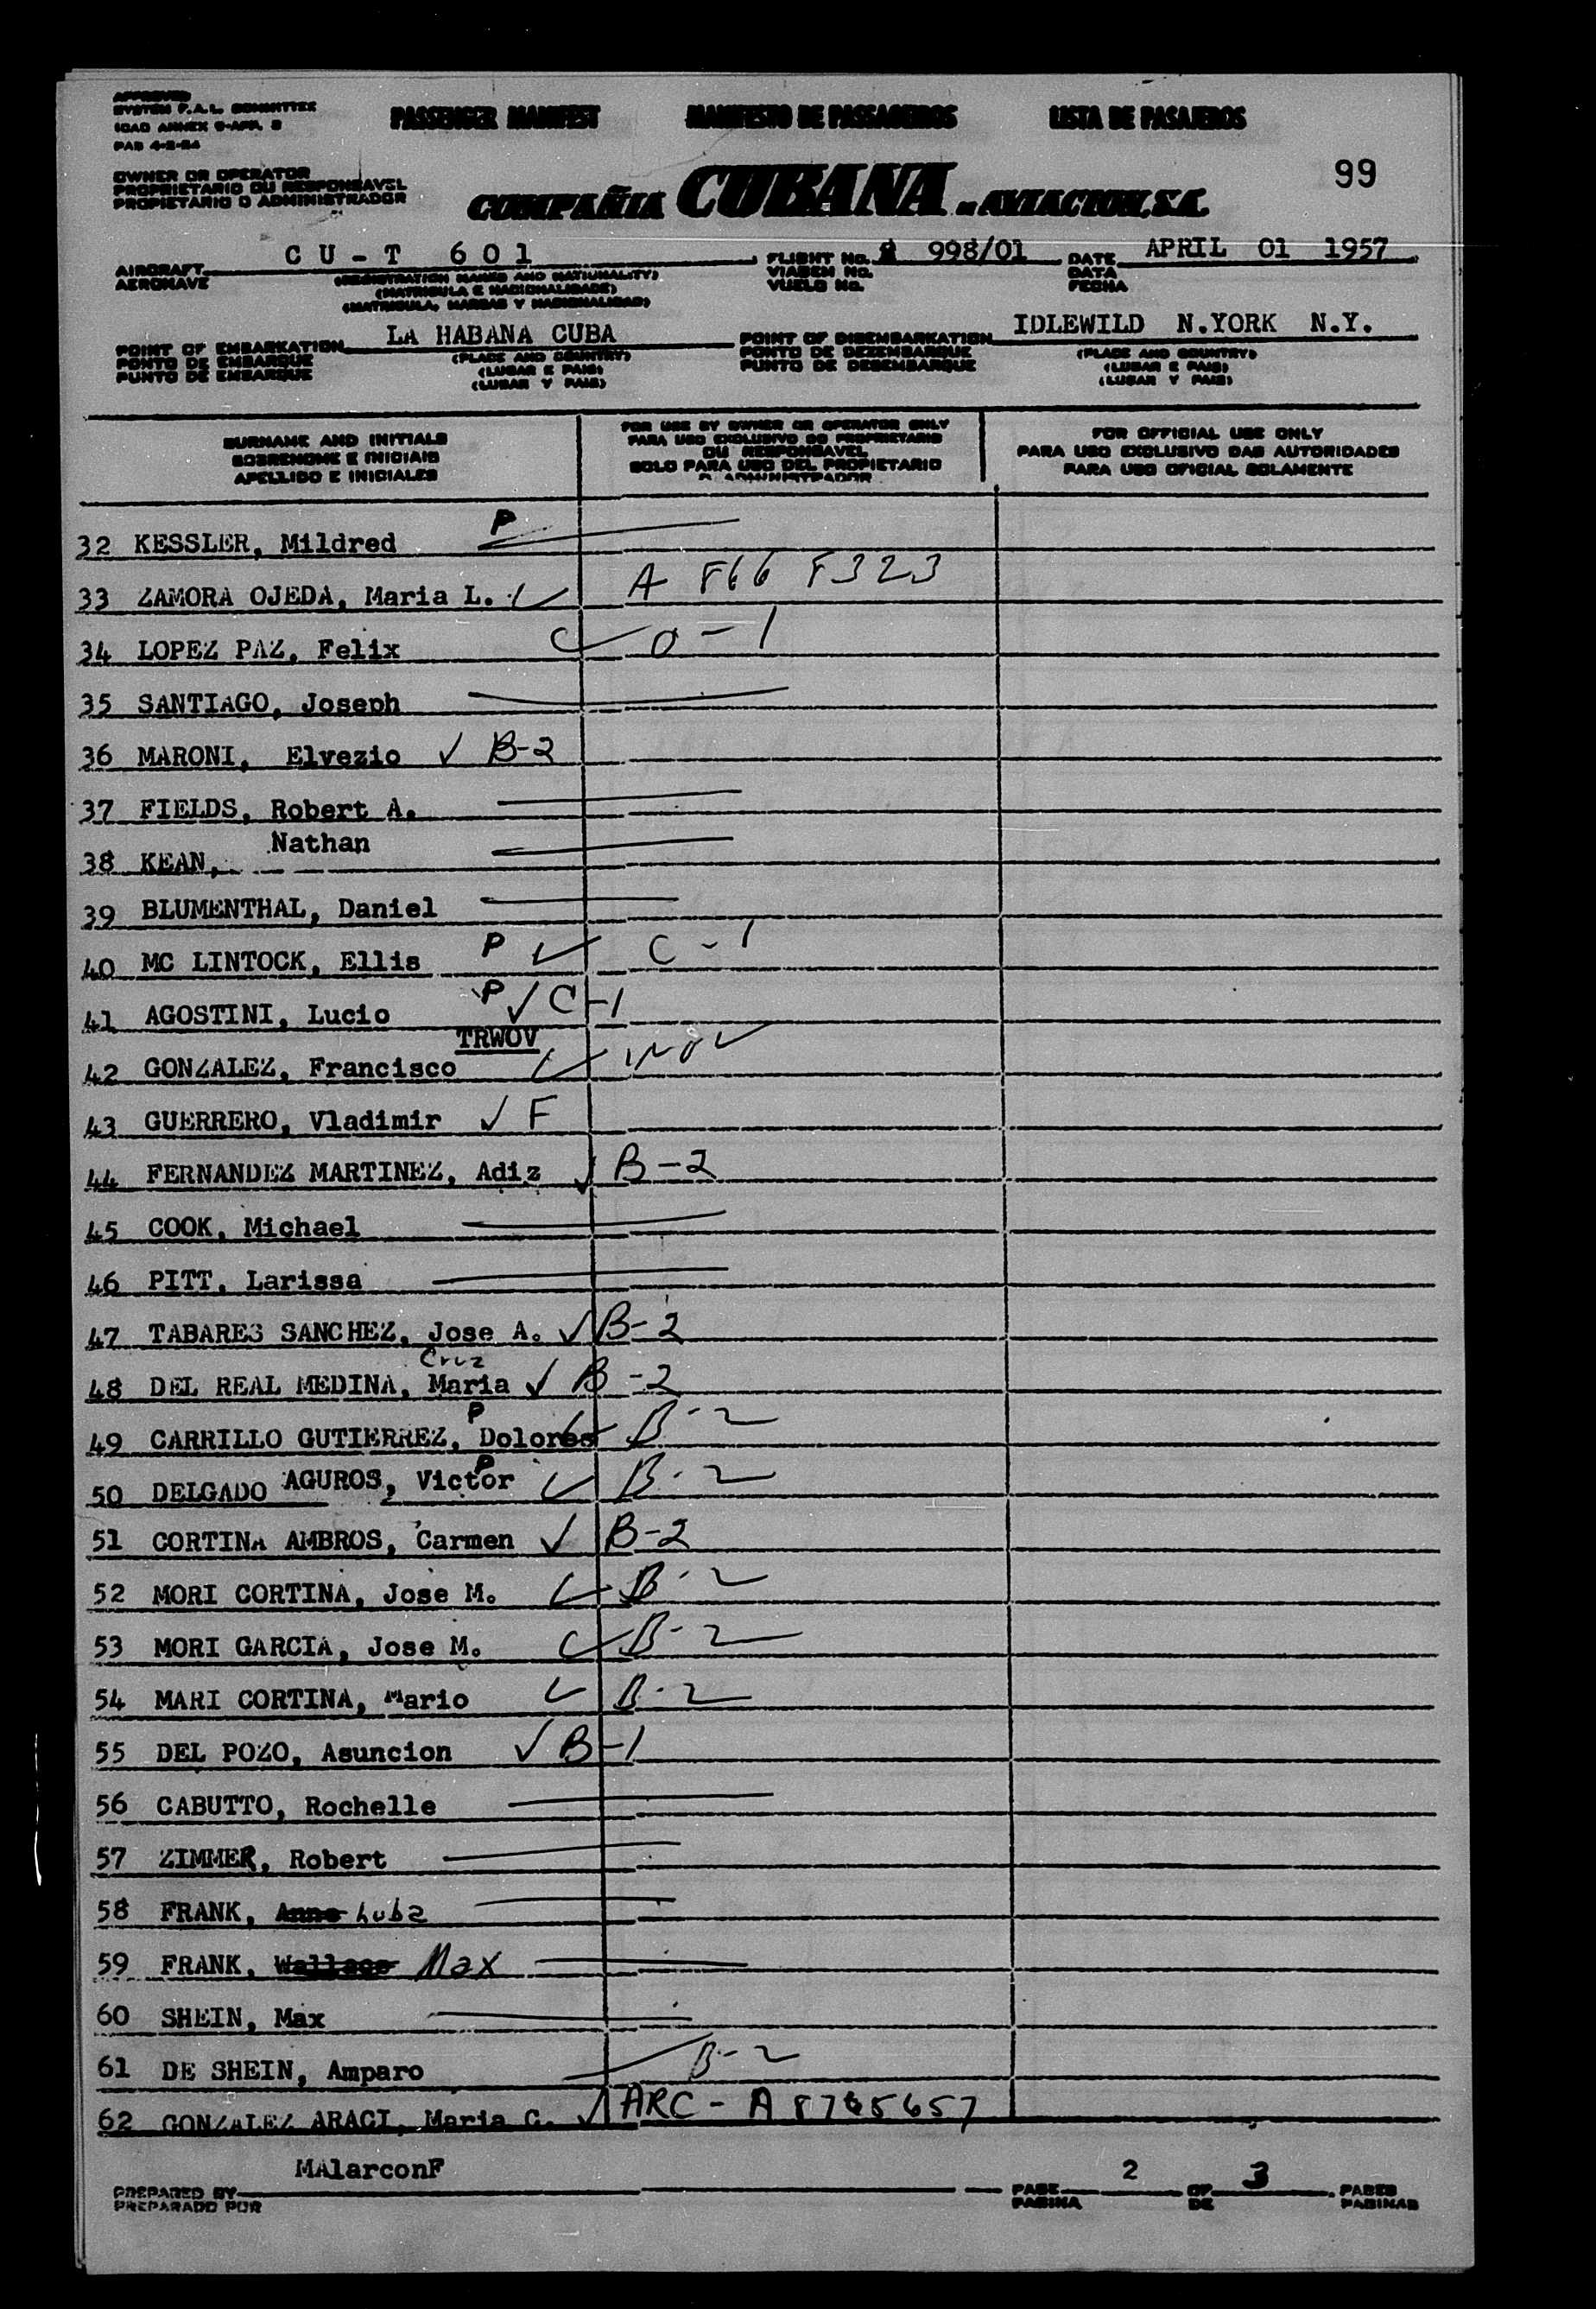 APPROVED
SYSTEM F.A.L. COMMITTEE
ICAO ANNEX 9-APP. 3
PAB 4-2-54
PASSENGER MANIFEST MANIFESTO DE PASSAGEIROS LISTA DE PASAJEROS
99
OWNER OR OPERATOR
PROPRIETARIO OU RESPONSAVEL
PROPIETARIO O ADMINISTRADOR
COMPAÑIA CUBANA DE AVIACION, S.A.
AIRCRAFT CU-T 601 FLIGHT No. 998/01 DATE APRIL 01 1957
AERONAVE (REGISTRATION MARKS AND NATIONALITY) VIAGEM No. DATA
(MATRICULA E NACIONALIDADE) VUELO No. FECHA
(MATRICULA, MARCAS Y NACIONALIDAD)
POINT OF EMBARKATION LA HABANA CUBA POINT OF DISEMBARKATION IDLEWILD N.YORK N.Y.
PONTO DE EMBARQUE (PLACE AND COUNTRY) PONTO DE DEZEMBARQUE (PLACE AND COUNTRY)
PUNTO DE EMBARQUE (LUGAR E PAIS) PUNTO DE DESEMBARQUE (LUGAR E PAIS)
(LUGAR Y PAIS) (LUGAR Y PAIS)
SURNAME AND INITIALS
SOBRENOME E INICIAIS
APELLIDO E INICIALES
FOR USE BY OWNER OR OPERATOR ONLY
PARA USO EXCLUSIVO DO PROPRIETARIO
OU RESPONSAVEL
SOLO PARA USO DEL PROPIETARIO
O ADMINISTRADOR
FOR OFFICIAL USE ONLY
PARA USO EXCLUSIVO DAS AUTORIDADES
PARA USO OFICIAL SOLAMENTE
32 KESSLER, Mildred P
33 ZAMORA OJEDA, Maria L. ✓ A 866 8323
34 LOPEZ PAZ, Felix ✓ O-1
35 SANTIAGO, Joseph
36 MARONI, Elvezio ✓ B-2
37 FIELDS, Robert A.
38 KEAN, Nathan
39 BLUMENTHAL, Daniel
40 MC LINTOCK, Ellis P ✓ C-1
41 AGOSTINI, Lucio P ✓ C-1
TRWOV
42 GONZALEZ, Francisco ✓
43 GUERRERO, Vladimir ✓ F
44 FERNANDEZ MARTINEZ, Adiz ✓ B-2
45 COOK, Michael
46 PITT, Larissa
47 TABARES SANCHEZ, Jose A. ✓ B-2
Cruz
48 DEL REAL MEDINA, Maria ✓ B-2
P
49 CARRILLO GUTIERREZ, Dolores ✓ B-2
P
50 DELGADO AGUROS, Victor ✓ B-2
51 CORTINA AMBROS, Carmen ✓ B-2
52 MORI CORTINA, Jose M. ✓ B-2
53 MORI GARCIA, Jose M. ✓ B-2
54 MARI CORTINA, Mario ✓ B-2
55 DEL POZO, Asuncion ✓ B-1
56 CABUTTO, Rochelle
57 ZIMMER, Robert
58 FRANK, Anne Luba
59 FRANK, Wallace Max
60 SHEIN, Max
61 DE SHEIN, Amparo B-2
62 GONZALEZ ARACI, Maria C. ✓ ARC - A 8765657
MAlarconF
PREPARED BY PAGE 2 OF 3 PAGES
PREPARADO POR PAGINA DE PAGINAS